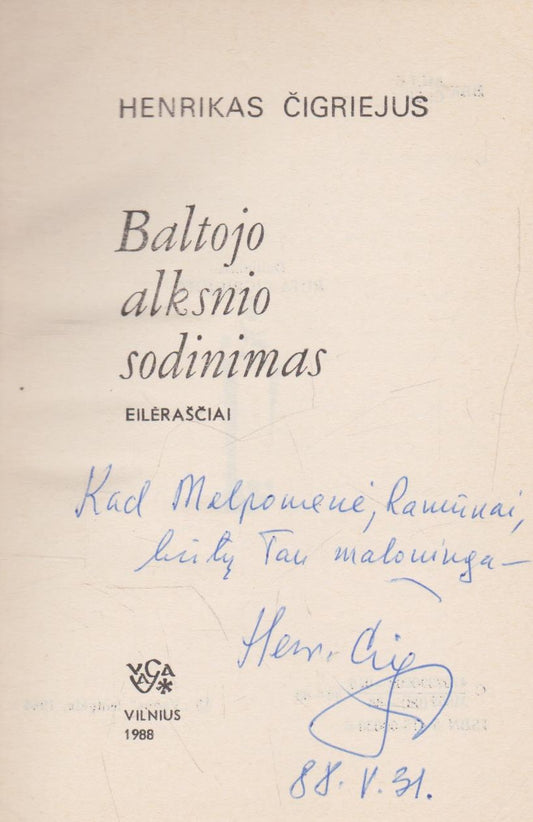 HENRIKAS ČIGRIEJUS
Baltojo
alksnio
sodinimas
EILĖRAŠČIAI
Kad Melpomenė, Ramūnai,
būtų Tau maloninga –
Henr. Čig
VAGA
VILNIUS
1988
88. V. 31.